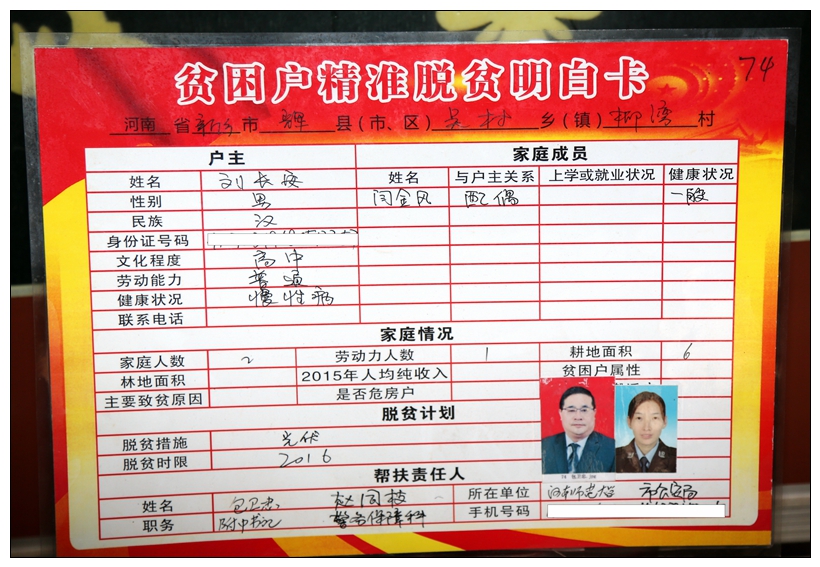 贫困户精准脱贫明白卡 74
河南省新乡市辉县(市、区)吴村乡(镇)柳湾村
户主 家庭成员
姓名 刘长安 姓名 与户主关系 上学或就业状况 健康状况
性别 男 闫金风 配偶 一般
民族 汉
身份证号码
文化程度 高中
劳动能力 普通
健康状况 慢性病
联系电话
家庭情况
家庭人数 2 劳动力人数 1 耕地面积 6
林地面积 2015年人均纯收入 贫困户属性
主要致贫原因 是否危房户
脱贫计划
脱贫措施 光伏
脱贫时限 2016
帮扶责任人
姓名 赵同枝 所在单位 河南师范大学 市公安局
职务 附中书记 警务保障科 手机号码